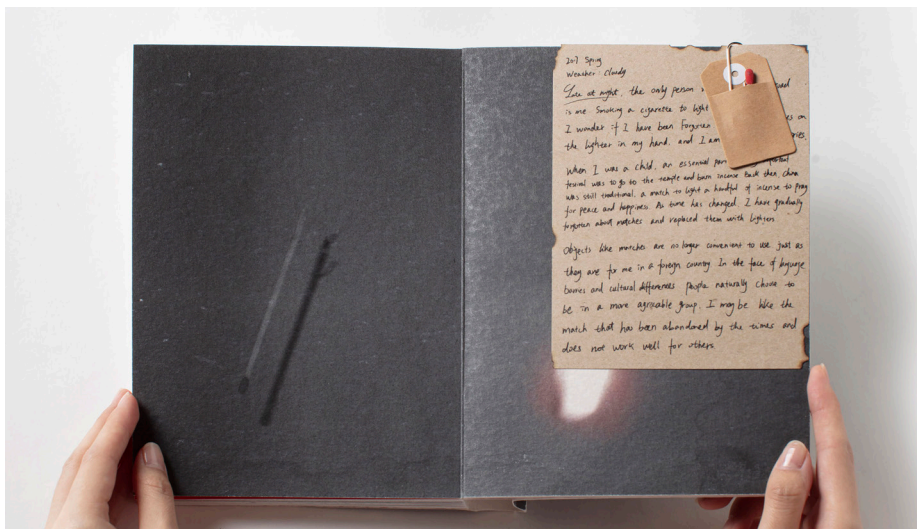 2017 Spring
Weather: Cloudy
Late at night, the only person
is me. Smoking a cigarette to light
I wonder if I have been forgotten on
the lighter in my hand, and I am
When I was a child, an essential
festival was to go to the temple and burn incense. Back then, China
was still traditional, a match to light a handful of incense to pray
for peace and happiness. As time has changed, I have gradually
forgotten about matches and replaced them with lighters.
Objects like matches are no longer convenient to use, just as
they are for me in a foreign country. In the face of language
barries and cultural differences people naturally choose to
be in a more agreeable group. I may be like the
match that has been abandoned by the times and
does not work well for others.